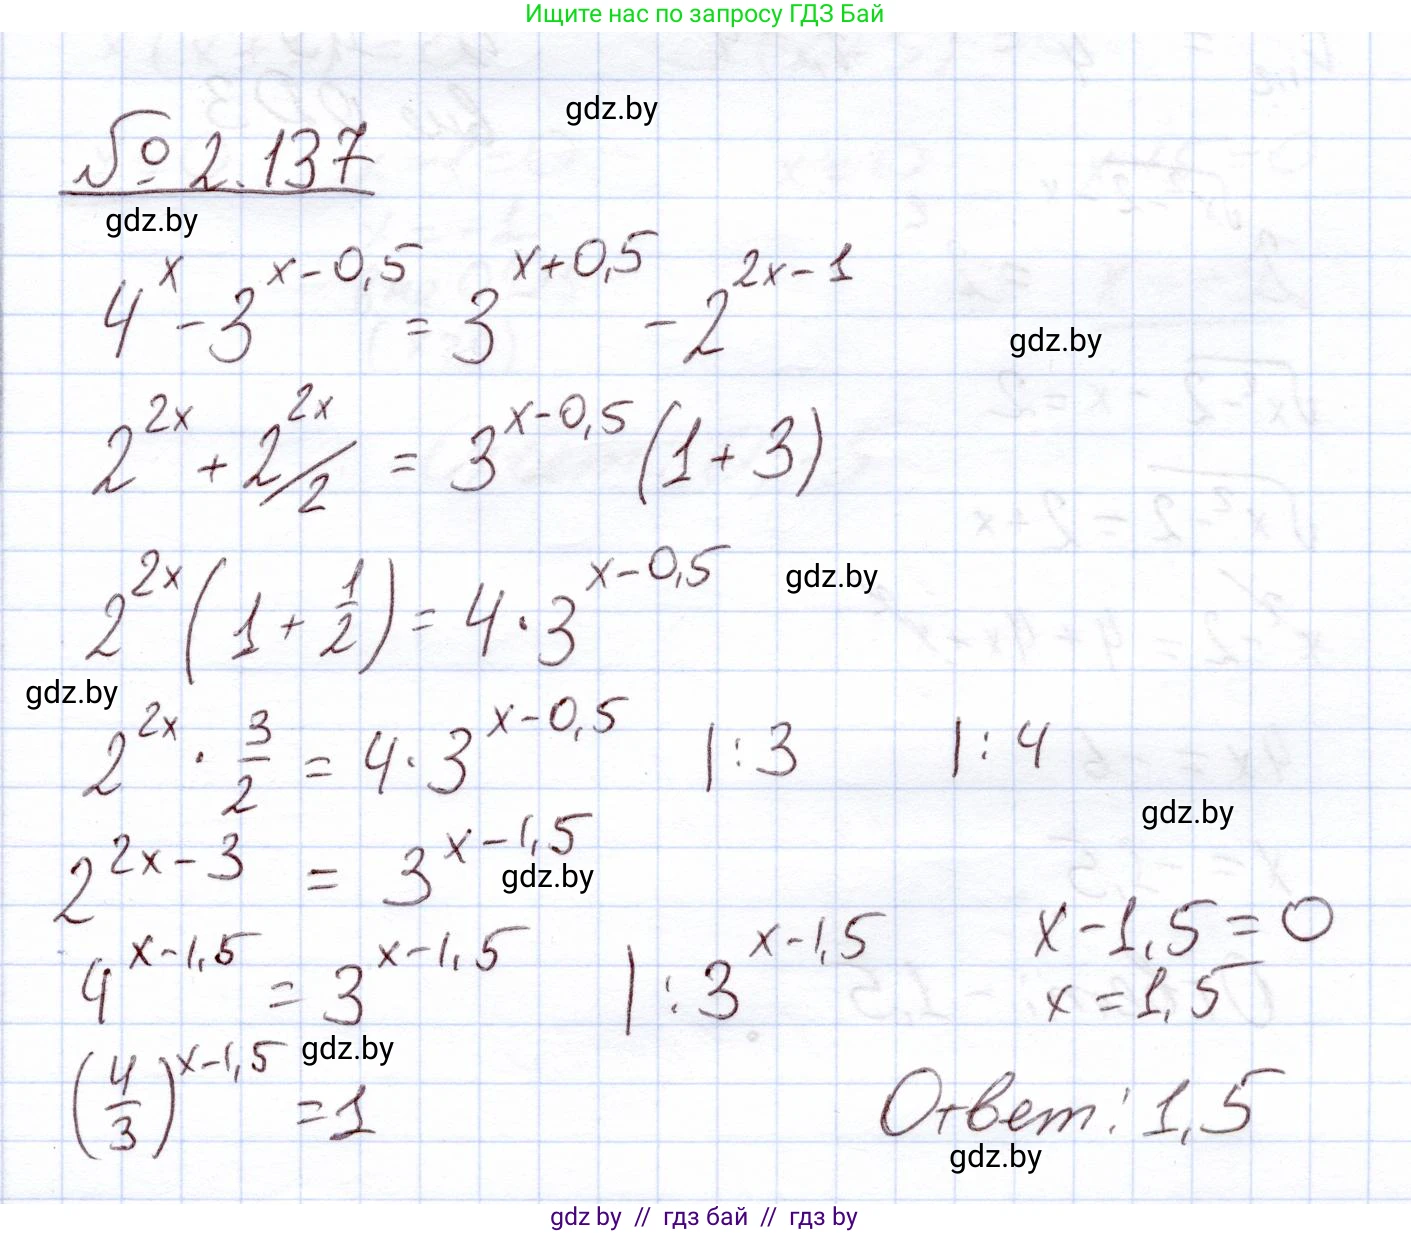 Ищите нас по запросу ГДЗ Бай
gdz.by
№ 2.137
gdz.by
4^x - 3^(x-0,5) = 3^(x+0,5) - 2^(2x-1)
gdz.by
2^(2x) + 2^(2x)/2 = 3^(x-0,5) (1+3)
2^(2x) (1 + 1/2) = 4·3^(x-0,5)
gdz.by
gdz.by
2^(2x) · 3/2 = 4·3^(x-0,5) |:3 |:4
gdz.by
2^(2x-3) = 3^(x-1,5)
gdz.by
4^(x-1,5) = 3^(x-1,5) |:3^(x-1,5)
x-1,5=0
x=1,5
gdz.by
(4/3)^(x-1,5) = 1
Ответ: 1,5
gdz.by
gdz by // гдз бай // gdz by